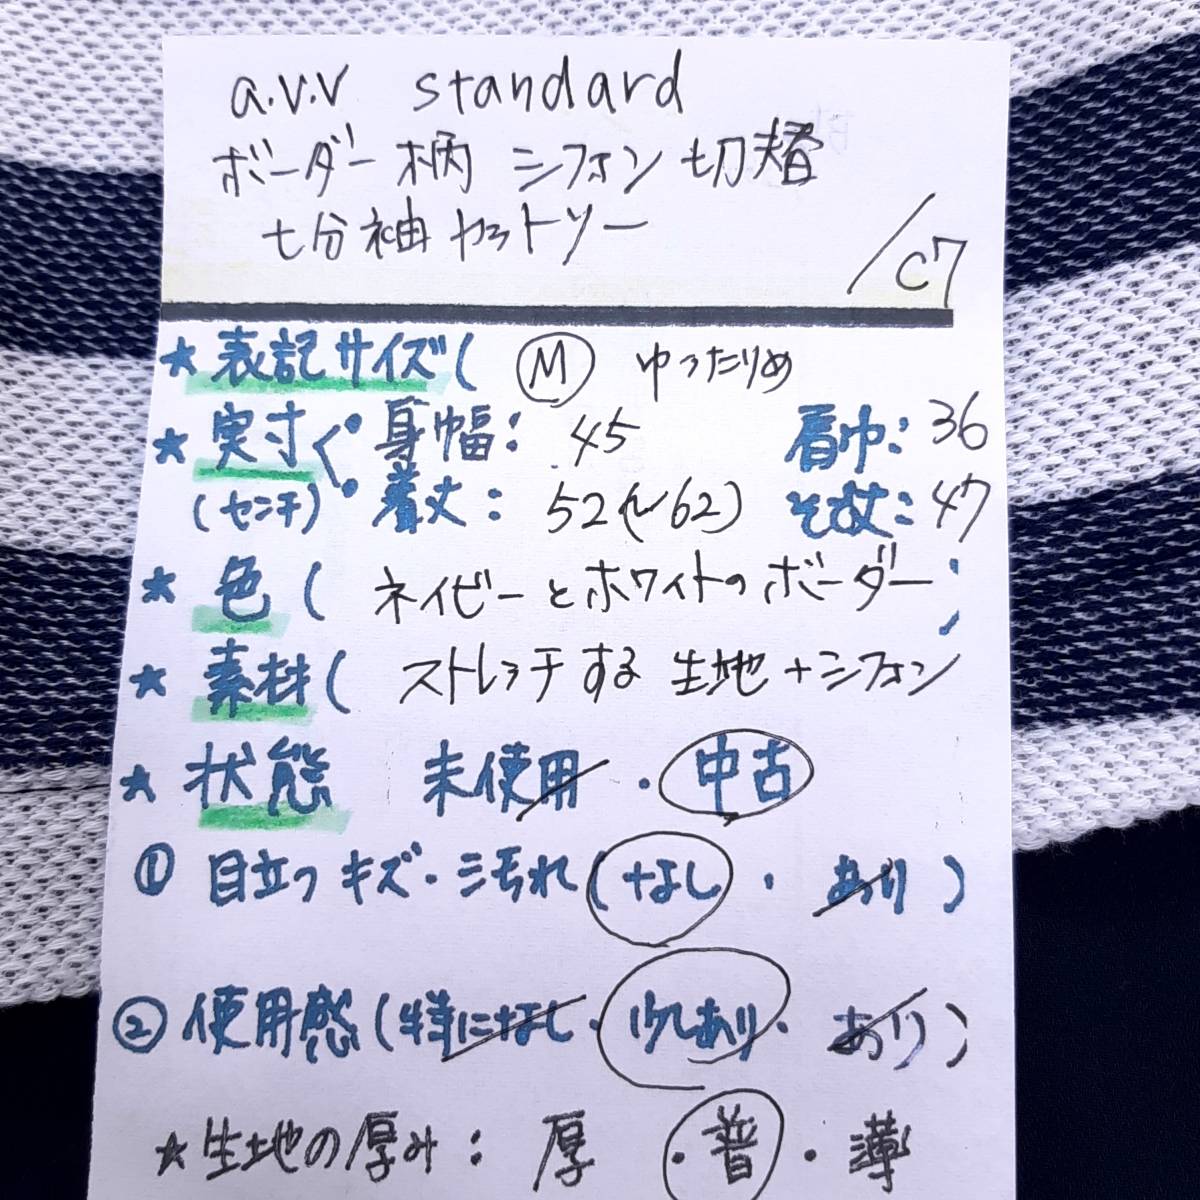 a.v.v standard
ボーダー柄 シフォン切替
七分袖カットソー
/C7
★表記サイズ( M ゆったりめ
★実寸く・身幅: 45 肩巾: 36
(センチ) ・着丈: 52(〜62) そで丈: 47
★色( ネイビーとホワイトのボーダー )
★素材( ストレッチする生地+シフォン
★状態 未使用・中古
① 目立つキズ・汚れ(なし・あり)
② 使用感(特になし・少しあり・あり)
★生地の厚み: 厚・普・薄